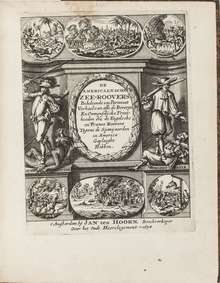 DE
AMERICAENSCHE
ZEE-ROOVERS
Behelsende een Pertinente
Verhael van alle de Roveryen
En Onmenschelycke Wreed
heeden die de Engelsche
en Franse Roovers
Tegens de Spanjaerden
in America
Gepleeght
Hebben.
t'Amsterdam by JAN ten HOORN, Boeckverkoper
Over het Oude Heerelogement 1678